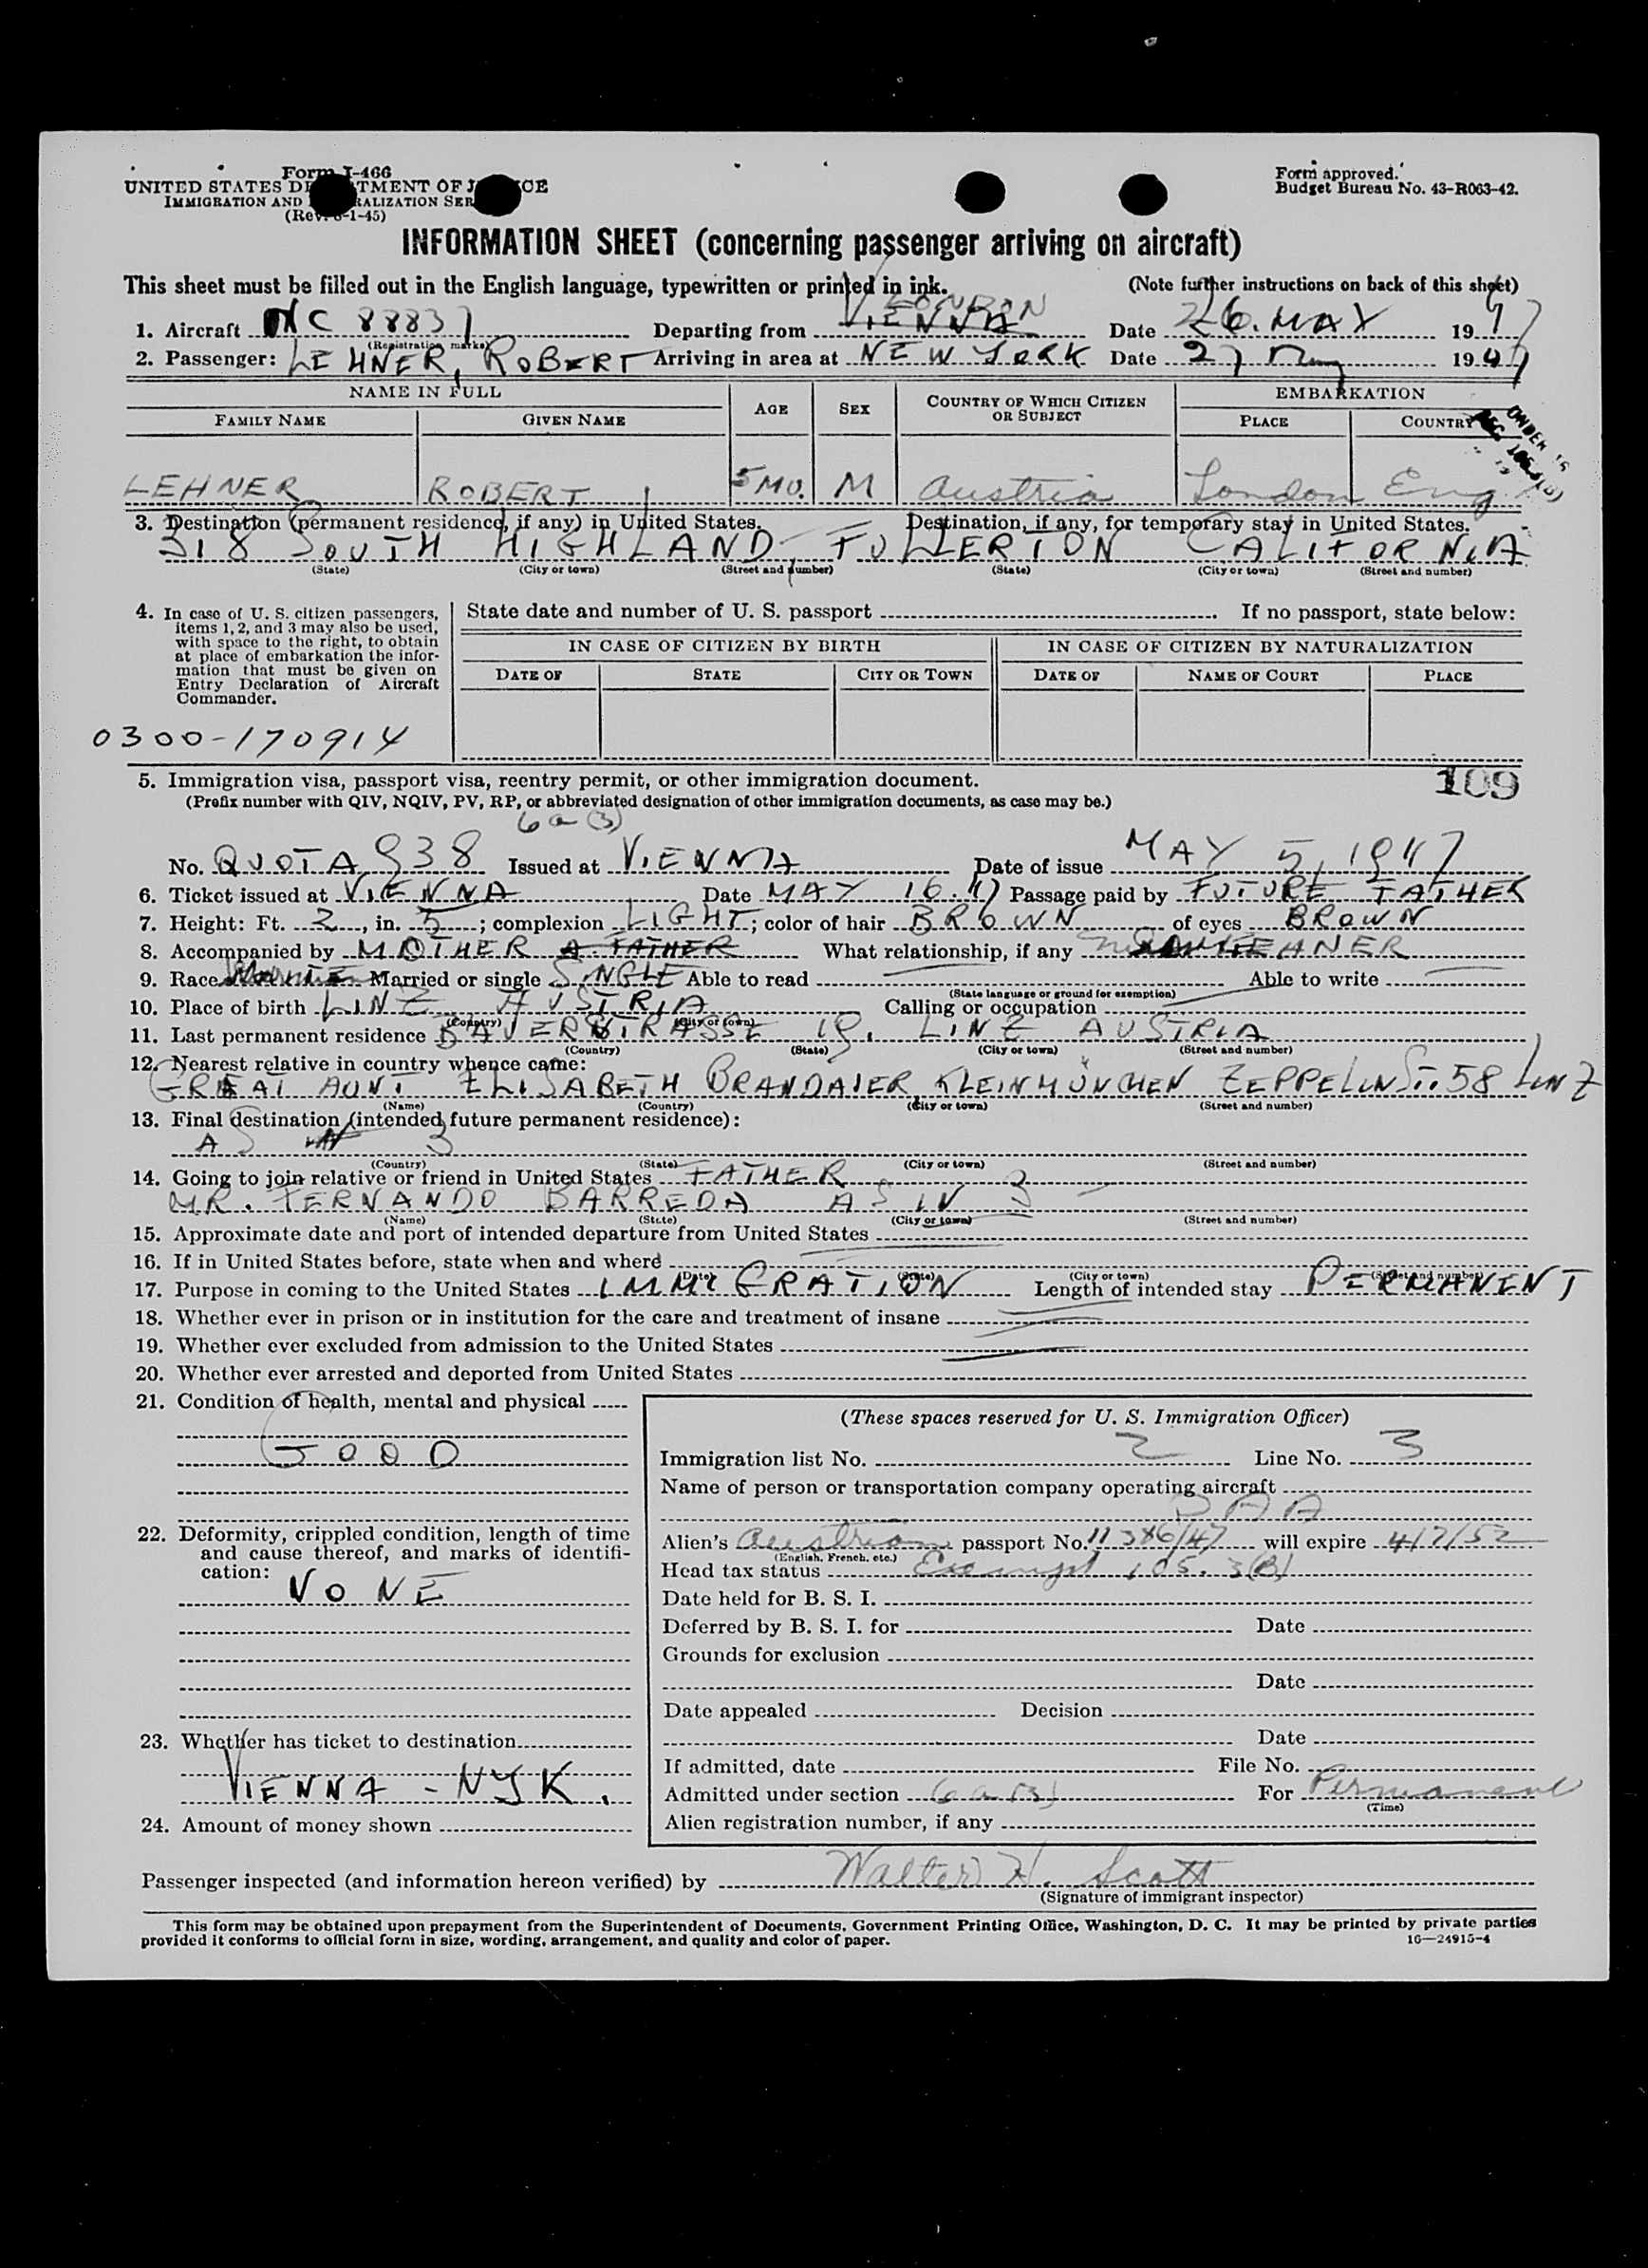 Form I-466
UNITED STATES DE TMENT OF J CE
IMMIGRATION AND RALIZATION SER
(Rev. 6-1-45)
Form approved.
Budget Bureau No. 43-R063-42.
INFORMATION SHEET (concerning passenger arriving on aircraft)
This sheet must be filled out in the English language, typewritten or printed in ink. (Note further instructions on back of this sheet)
LONDON
1. Aircraft NC 88837 Departing from VIENNA Date 26. MAY 1947
(Registration marks)
2. Passenger: LEHNER, ROBERT Arriving in area at NEW YORK Date 27 May 1947
NAME IN FULL AGE SEX COUNTRY OF WHICH CITIZEN OR SUBJECT EMBARKATION
FAMILY NAME GIVEN NAME PLACE COUNTRY
UNDER 16
LEHNER ROBERT 5 MO. M Austria London Eng.
3. Destination (permanent residence, if any) in United States. Destination, if any, for temporary stay in United States.
318 SOUTH HIGHLAND FULLERTON CALIFORNIA
(State) (City or town) (Street and number) (State) (City or town) (Street and number)
4. In case of U. S. citizen passengers, items 1, 2, and 3 may also be used, with space to the right, to obtain at place of embarkation the information that must be given on Entry Declaration of Aircraft Commander.
State date and number of U. S. passport . If no passport, state below:
IN CASE OF CITIZEN BY BIRTH IN CASE OF CITIZEN BY NATURALIZATION
DATE OF STATE CITY OR TOWN DATE OF NAME OF COURT PLACE
0300-170914
109
5. Immigration visa, passport visa, reentry permit, or other immigration document.
(Prefix number with QIV, NQIV, PV, RP, or abbreviated designation of other immigration documents, as case may be.)
6 a (3)
No. QUOTA 938 Issued at VIENNA Date of issue MAY 5, 1947
6. Ticket issued at VIENNA Date MAY 16. 47 Passage paid by FUTURE FATHER
7. Height: Ft. 2, in. 5; complexion LIGHT; color of hair BROWN of eyes BROWN
8. Accompanied by MOTHER & FATHER What relationship, if any LEHNER
9. Race Married or single SINGLE Able to read Able to write
(State language or ground for exemption)
10. Place of birth LINZ AUSTRIA Calling or occupation
(Country) (City or town)
11. Last permanent residence BAUERSTRASSE 19. LINZ AUSTRIA
(Country) (State) (City or town) (Street and number)
12. Nearest relative in country whence came:
GREAT AUNT ELISABETH BRANDAIER KLEINMÜNCHEN ZEPPELIN ST. 58 LINZ
(Name) (Country) (City or town) (Street and number)
13. Final destination (intended future permanent residence):
AS IN 3
(Country) (State) (City or town) (Street and number)
14. Going to join relative or friend in United States FATHER
MR. FERNANDO BARREDA AS IN 3
(Name) (State) (City or town) (Street and number)
15. Approximate date and port of intended departure from United States
16. If in United States before, state when and where
(Date) (State) (City or town) (Street and number)
17. Purpose in coming to the United States IMMIGRATION Length of intended stay PERMANENT
18. Whether ever in prison or in institution for the care and treatment of insane
19. Whether ever excluded from admission to the United States
20. Whether ever arrested and deported from United States
21. Condition of health, mental and physical
GOOD
22. Deformity, crippled condition, length of time and cause thereof, and marks of identification:
NONE
23. Whether has ticket to destination
VIENNA - NYK.
24. Amount of money shown
(These spaces reserved for U. S. Immigration Officer)
Immigration list No. 2 Line No. 3
Name of person or transportation company operating aircraft
PAA
Alien's Austrian passport No. 11386/47 will expire 4/7/52
(English, French, etc.)
Head tax status Exempt 105.3(B)
Date held for B. S. I.
Deferred by B. S. I. for Date
Grounds for exclusion
Date
Date appealed Decision
Date
If admitted, date File No.
Admitted under section 6 a (3) For Permanent
(Time)
Alien registration number, if any
Passenger inspected (and information hereon verified) by Walter H. Scott
(Signature of immigrant inspector)
This form may be obtained upon prepayment from the Superintendent of Documents, Government Printing Office, Washington, D. C. It may be printed by private parties
provided it conforms to official form in size, wording, arrangement, and quality and color of paper. 16—24915-4